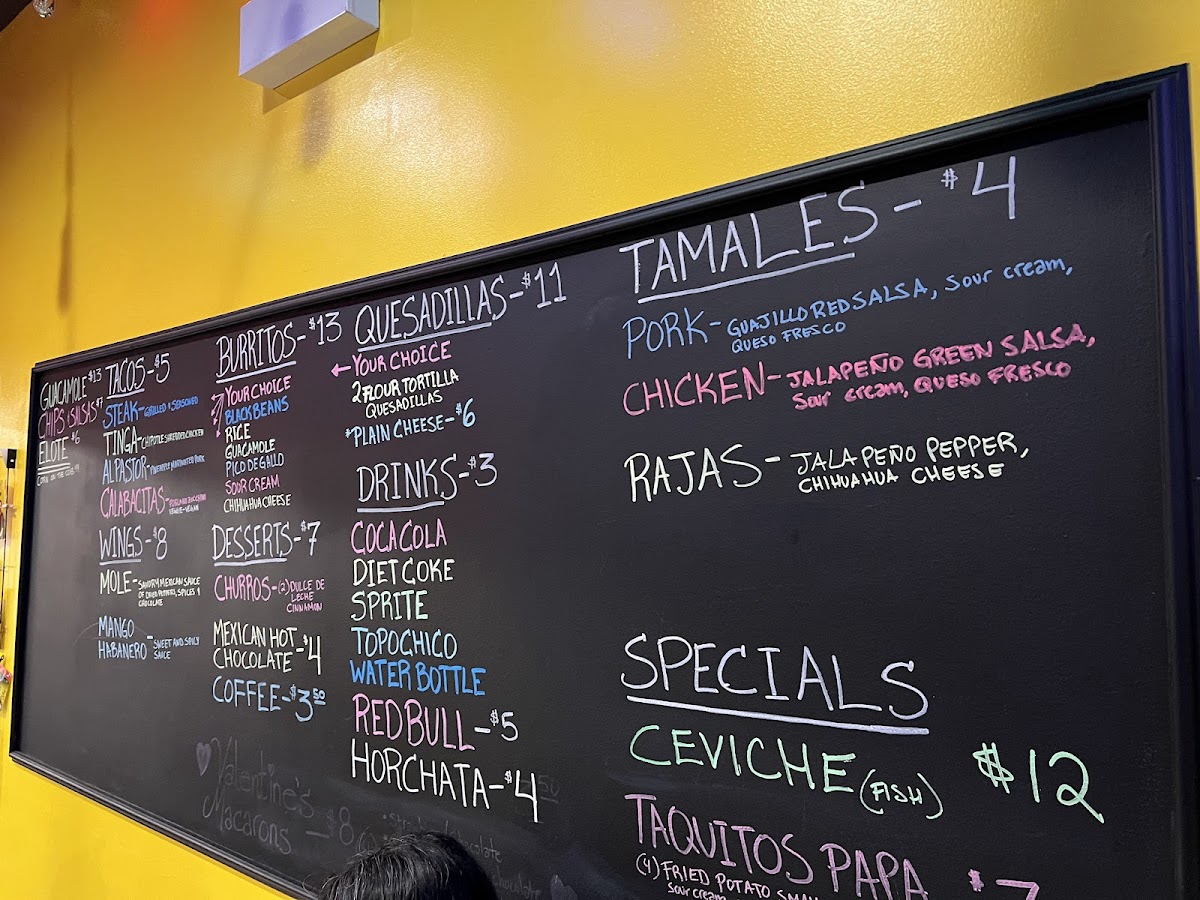 GUACAMOLE $13
CHIPS & SALSAS $7
ELOTE $6
CORN ON THE COB
TACOS - $5
STEAK - GRILLED & SEASONED
TINGA - CHIPOTLE SHREDDED CHICKEN
AL PASTOR - PINEAPPLE MARINATED PORK
CALABACITAS -
WINGS - $8
MOLE - SAVORY MEXICAN SAUCE
OF DRIED PEPPERS, SPICES &
CHOCOLATE
MANGO
HABANERO - SWEET AND SPICY
SAUCE
BURRITOS - $13
YOUR CHOICE
BLACK BEANS
RICE
GUACAMOLE
PICO DE GALLO
SOUR CREAM
CHIHUAHUA CHEESE
DESSERTS - $7
CHURROS - (2) DULCE DE
LECHE
CINNAMON
MEXICAN HOT
CHOCOLATE - $4
COFFEE - $3 50
Valentine's
Macarons - $8
QUESADILLAS - $11
YOUR CHOICE
2 FLOUR TORTILLA
QUESADILLAS
*PLAIN CHEESE - $6
DRINKS - $3
COCA COLA
DIET COKE
SPRITE
TOPOCHICO
WATER BOTTLE
RED BULL - $5
HORCHATA - $4
TAMALES - $4
PORK - GUAJILLO RED SALSA, Sour cream,
QUESO FRESCO
CHICKEN - JALAPEÑO GREEN SALSA,
Sour cream, QUESO FRESCO
RAJAS - JALAPEÑO PEPPER,
CHIHUAHUA CHEESE
SPECIALS
CEVICHE (FISH) $12
TAQUITOS PAPA $7
(4) FRIED POTATO
Sour cream